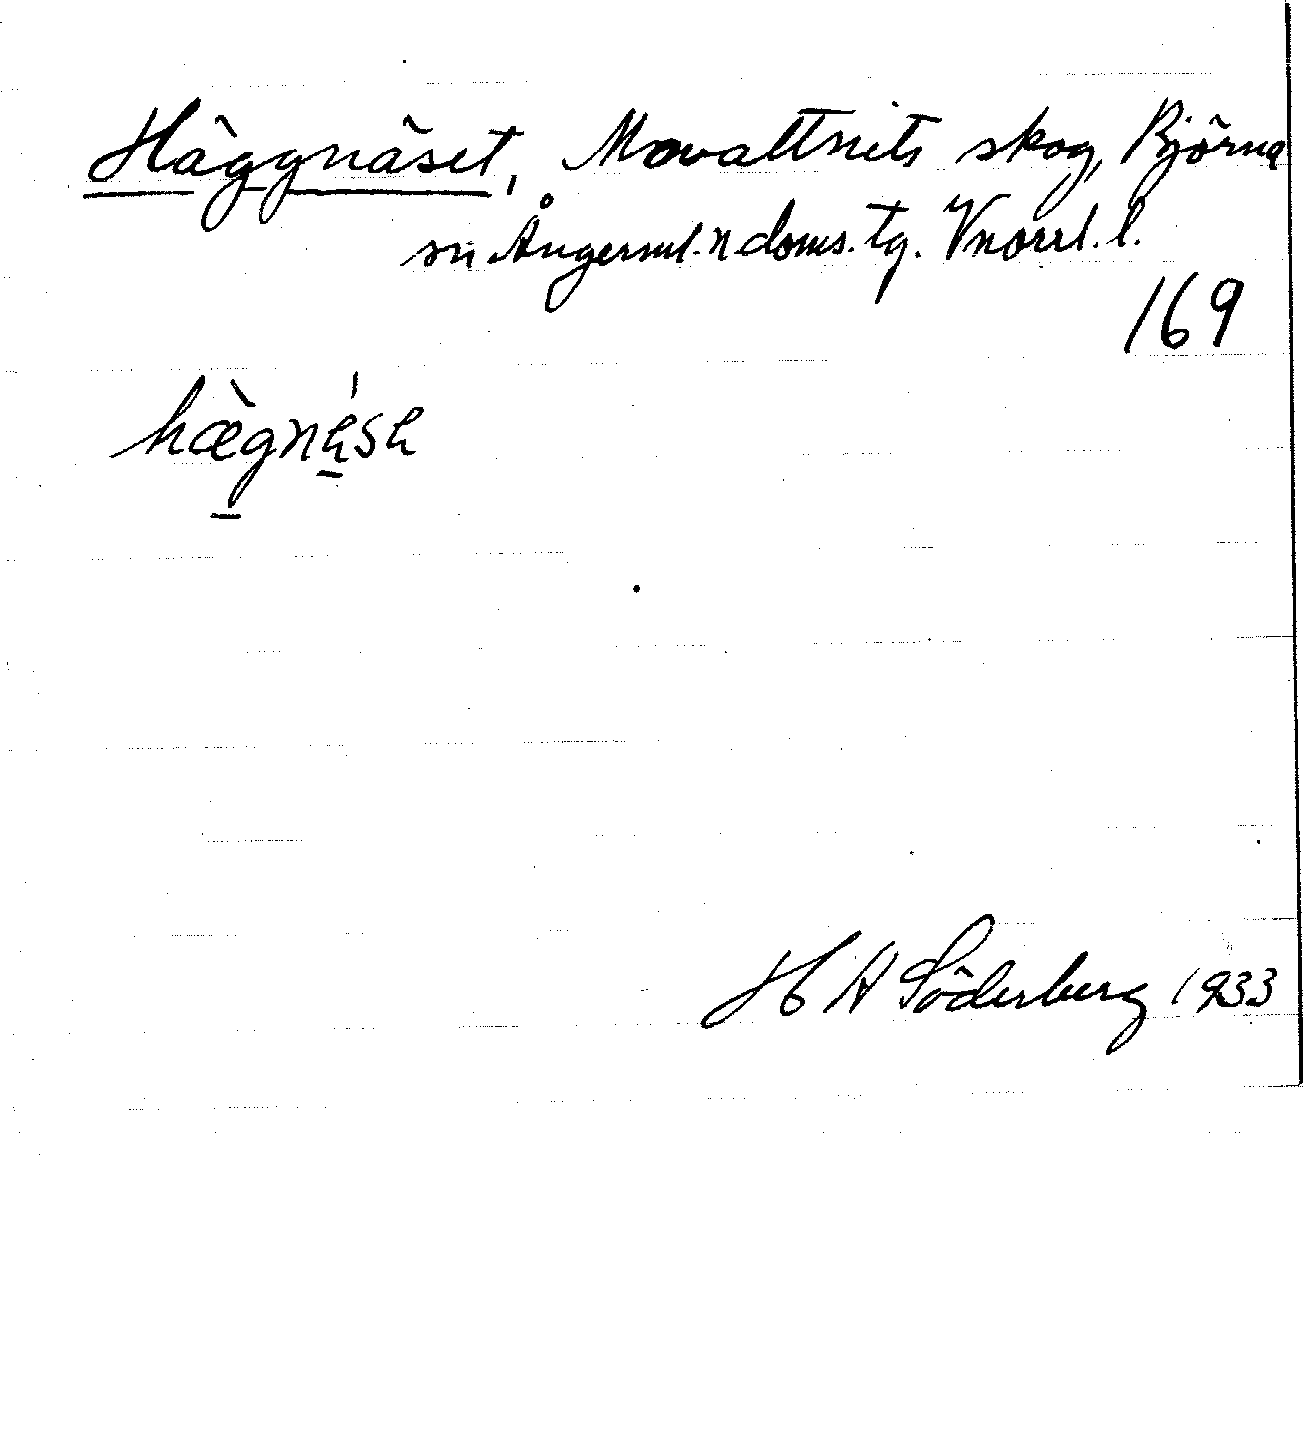 Häggnäset, Movattnets skog, Björna
sn Ångerml. n doms. tg. Vnorrl. l.
169
hægnése
H A Söderberg 1933